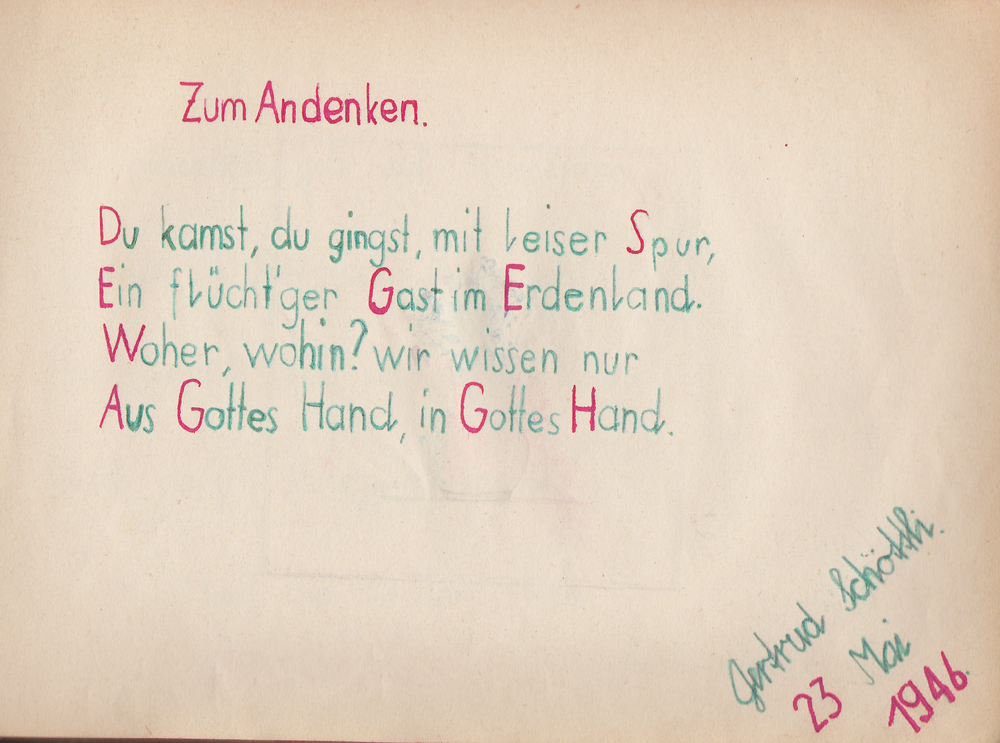 Zum Andenken.
Du kamst, du gingst, mit leiser Spur,
Ein flücht'ger Gast im Erdenland.
Woher, wohin? wir wissen nur
Aus Gottes Hand, in Gottes Hand.
Gertrud Schöttli.
23 Mai
1946.